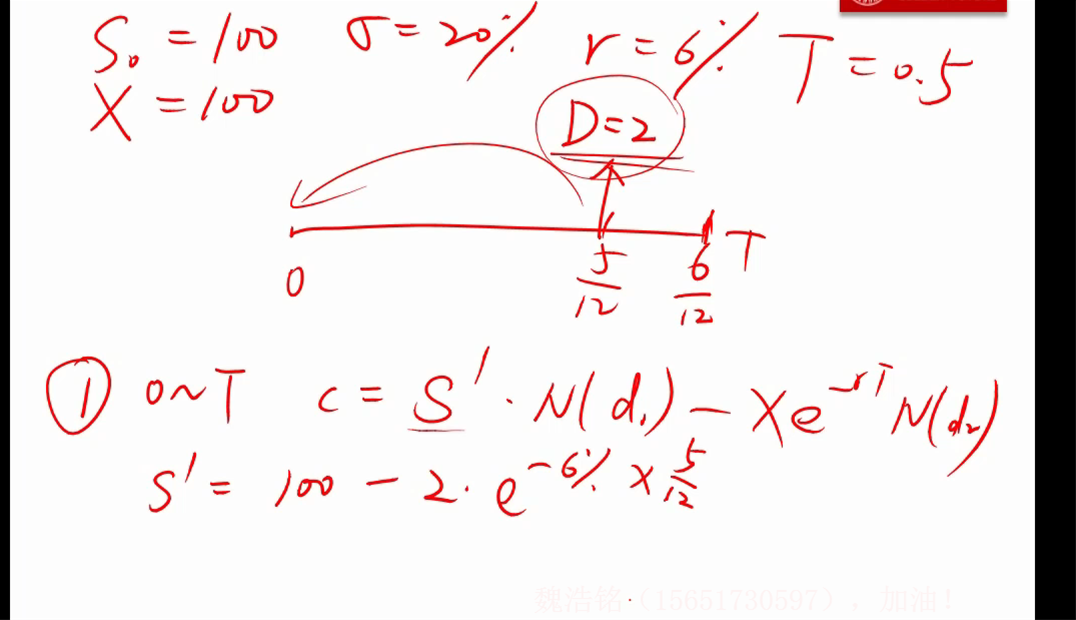 S₀ = 100 σ = 20% r = 6% T = 0.5
X = 100
D = 2
0 5/12 6/12 T
① 0~T c = S' · N(d₁) − Xe^(−rT) N(d₂)
S' = 100 − 2 · e^(−6% × 5/12)
魏浩铭 (15651730597), 加油!